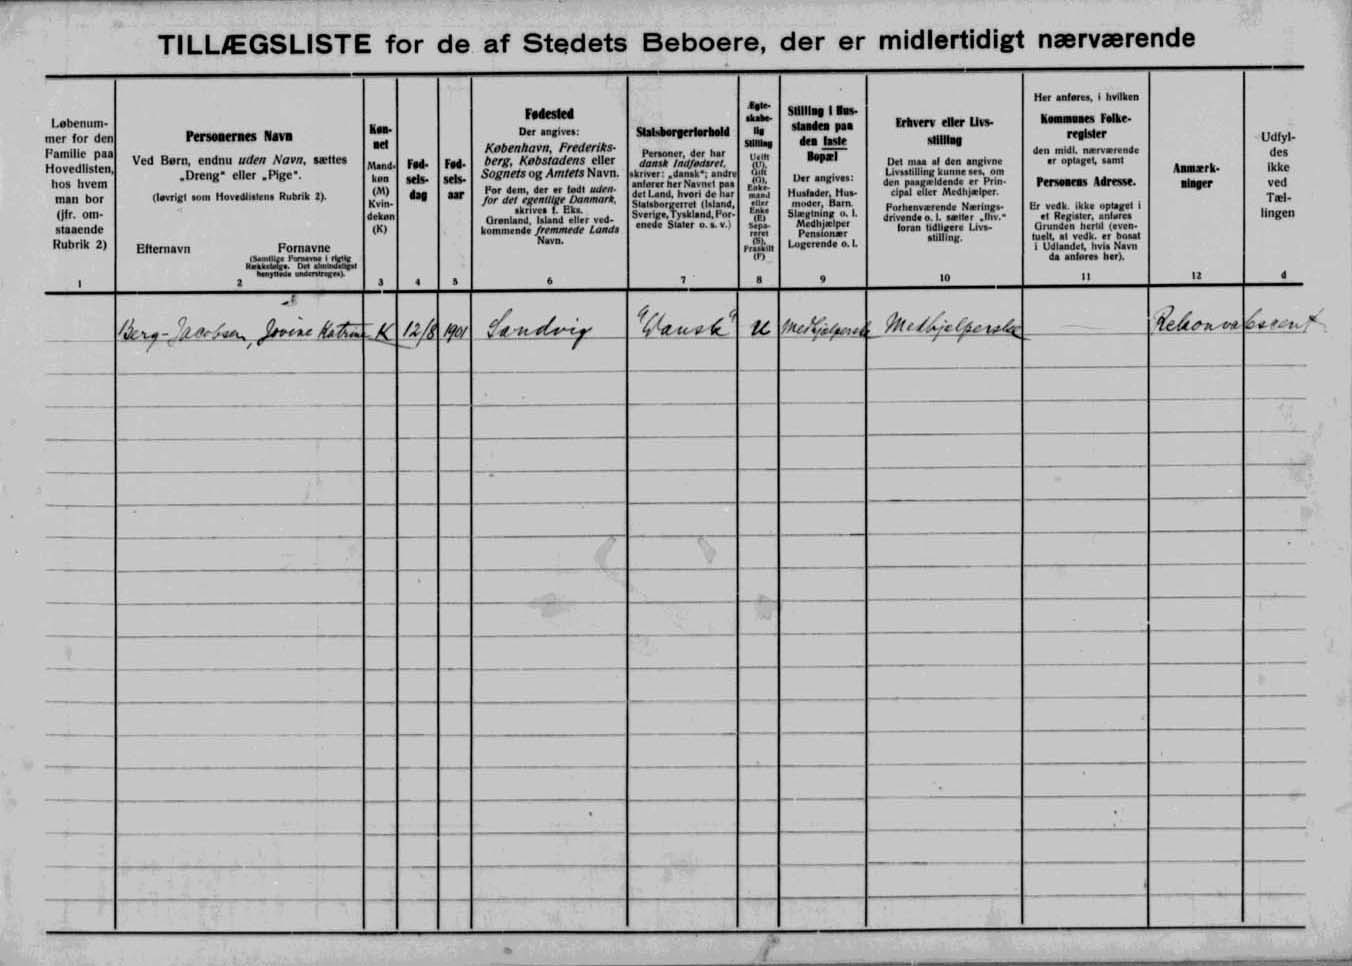 TILLÆGSLISTE for de af Stedets Beboere, der er midlertidigt nærværende
Løbenum-
mer for den
Familie paa
Hovedlisten,
hos hvem
man bor
(jfr. om-
staaende
Rubrik 2)
1
Personernes Navn
Ved Børn, endnu uden Navn, sættes
„Dreng“ eller „Pige“.
(Iøvrigt som Hovedlistens Rubrik 2).
Efternavn Fornavne
(Samtlige Fornavne i rigtig
Rækkefølge. Det almindeligst
benyttede understreges).
2
Køn-
net
Mand-
køn
(M)
Kvin-
dekøn
(K)
3
Fød-
sels-
dag
4
Fød-
sels-
aar
5
Fødested
Der angives:
København, Frederiks-
berg, Købstadens eller
Sognets og Amtets Navn.
For dem, der er født uden-
for det egentlige Danmark,
skrives f. Eks.
Grønland, Island eller ved-
kommende fremmede Lands
Navn.
6
Statsborgerforhold
Personer, der har
dansk Indfødsret,
skriver: „dansk“; andre
anfører her Navnet paa
det Land, hvori de har
Statsborgerret (Island,
Sverige, Tyskland, For-
enede Stater o. s. v.)
7
Ægte-
skabe-
lig
Stilling
Ugift
(U),
Gift
(G),
Enke-
mand
eller
Enke
(E)
Sepa-
reret
(S),
Fraskilt
(F)
8
Stilling i Hus-
standen paa
den faste
Bopæl
Der angives:
Husfader, Hus-
moder, Barn.
Slægtning o. l.
Medhjælper
Pensionær
Logerende o. l.
9
Erhverv eller Livs-
stilling
Det maa af den angivne
Livsstilling kunne ses, om
den paagældende er Prin-
cipal eller Medhjælper.
Forhenværende Nærings-
drivende o. l. sætter „fhv.“
foran tidligere Livs-
stilling.
10
Her anføres, i hvilken
Kommunes Folke-
register
den midl. nærværende
er optaget, samt
Personens Adresse.
Er vedk. ikke optaget i
et Register, anføres
Grunden hertil (even-
tuelt, at vedk. er bosat
i Udlandet, hvis Navn
da anføres her).
11
Anmærk-
ninger
12
Udfyl-
des
ikke
ved
Tæl-
lingen
d
Berg-Jacobsen, Jovine Katrine K 12/8 1901 Sandvig "Dansk" U Medhjelperske Medhjelperske Rekonvalescent